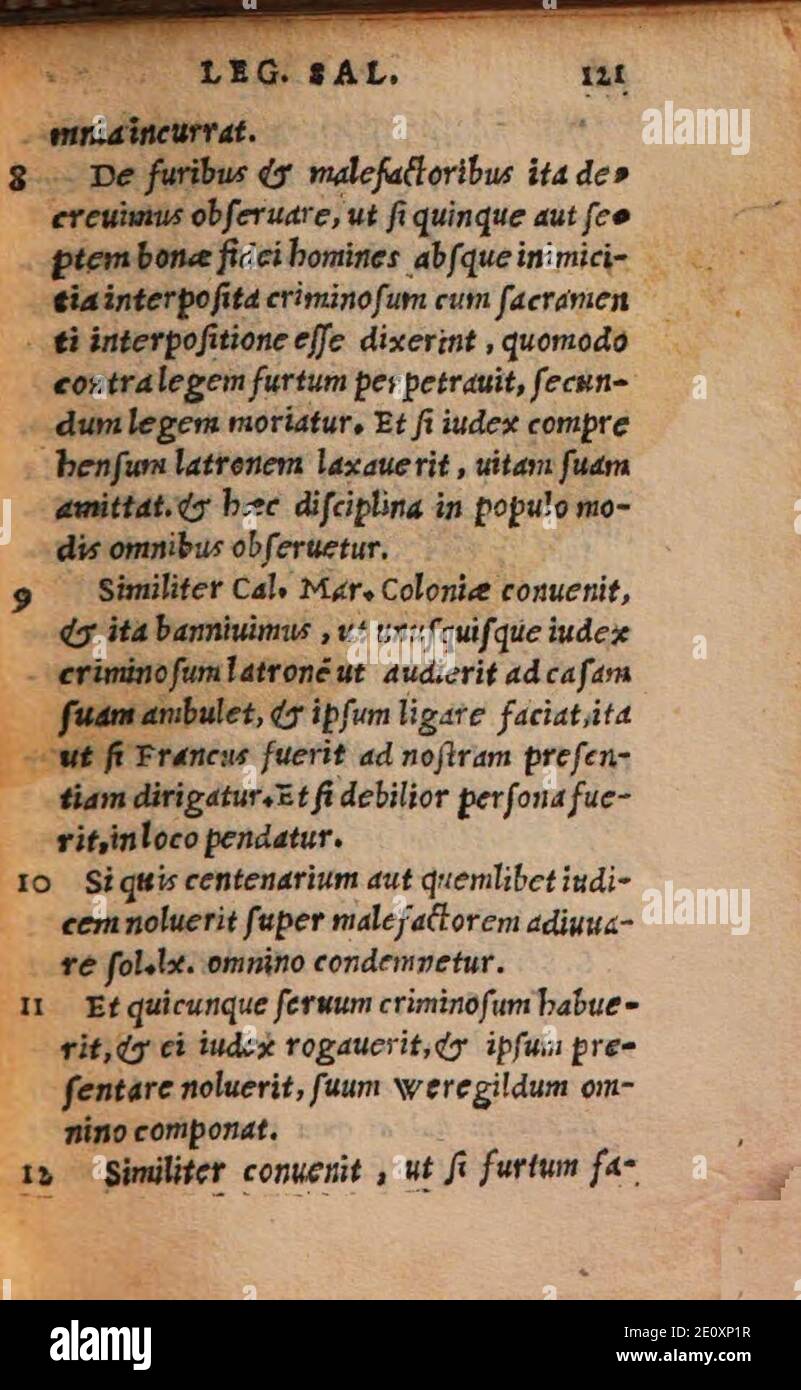 LEG. SAL. 121
mnia incurrat.
8 De furibus & malefactoribus ita de-
creuimus obſeruare, ut ſi quinque aut ſe-
ptem bonæ fidei homines abſque inimici-
tia interpoſita criminoſum cum ſacramen
ti interpoſitione eſſe dixerint, quomodo
contra legem furtum perpetrauit, ſecun-
dum legem moriatur. Et ſi iudex compre
henſum latronem laxauerit, uitam ſuam
amittat. & hæc diſciplina in populo mo-
dis omnibus obſeruetur.
9 Similiter Cal. Mar. Coloniæ conuenit,
& ita banniuimus, ut unuſquiſque iudex
criminoſum latronē ut audierit ad caſam
ſuam ambulet, & ipſum ligare faciat, ita
ut ſi Francus fuerit ad noſtram preſen-
tiam dirigatur. Et ſi debilior perſona fue-
rit, in loco pendatur.
10 Si quis centenarium aut quemlibet iudi-
cem noluerit ſuper malefactorem adiuua-
re ſol. lx. omnino condemnetur.
11 Et quicunque ſeruum criminoſum habue-
rit, & ei iudex rogauerit, & ipſum pre-
ſentare noluerit, ſuum weregildum om-
nino componat.
12 Similiter conuenit, ut ſi furtum fa-
alamy
Image ID: 2E0XP1R
www.alamy.com